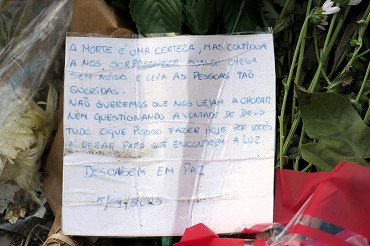 A MORTE É UMA CERTEZA, MAS CONTINUA
A NOS SURPREENDER QUANDO CHEGA
SEM AVISO E LEVA AS PESSOAS TÃO
QUERIDAS.
NÃO QUEREMOS QUE NOS VEJAM A CHORAR
NEM QUESTIONANDO A VONTADE DE DEUS
TUDO O QUE POSSO FAZER HOJE POR VOCÊS
É REZAR PARA QUE ENCONTREM A LUZ
DESCANSEM EM PAZ